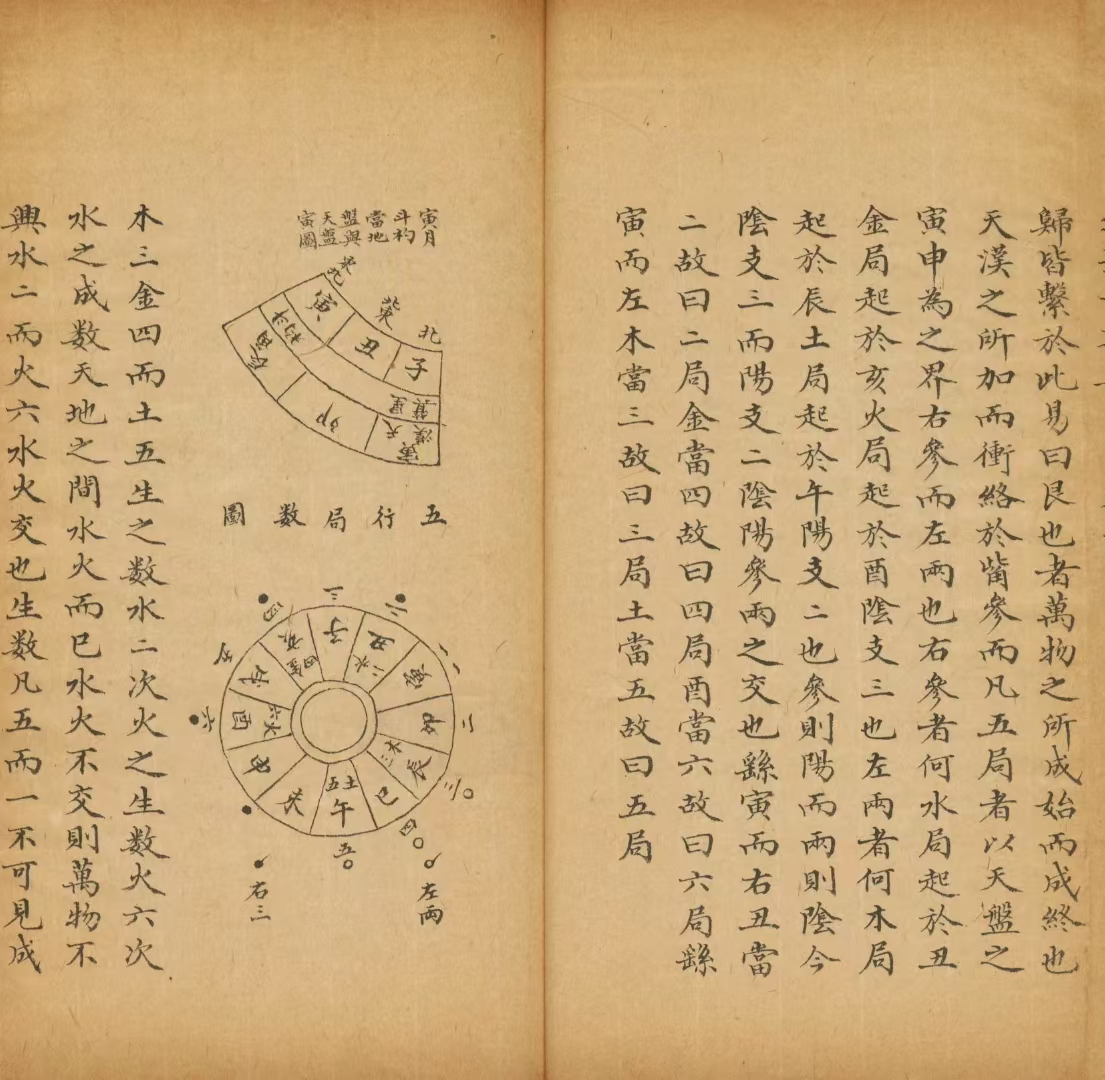 歸皆繫於此易曰艮也者萬物之所成始而成終也
天漢之所加而衝絡於觜參而凡五局者以天盤之
寅申為之界右參而左兩也右參者何水局起於丑
金局起於亥火局起於酉陰支三也左兩者何木局
起於辰土局起於午陽支二也參則陽而兩則陰今
陰支三而陽支二陰陽參兩之交也繇寅而右丑當
二故曰二局金當四故曰四局酉當六故曰六局繇
寅而左木當三故曰三局土當五故曰五局
寅月
斗杓
當地
盤與
天盤
寅圖
北
東北
子
丑
寅
箕星
天漢
寅
卯
五行局數圖
三
子
二
丑
二水
一
寅
二
卯
三〇
辰
三木
四〇
巳
五〇
午
土五
未
申
六
酉
六火
五
戌
四
亥
四金
左兩
右三
木三金四而土五生之數水二次火之生數火六次
水之成數天地之間水火而已水火不交則萬物不
興水二而火六水火交也生數凡五而一不可見成